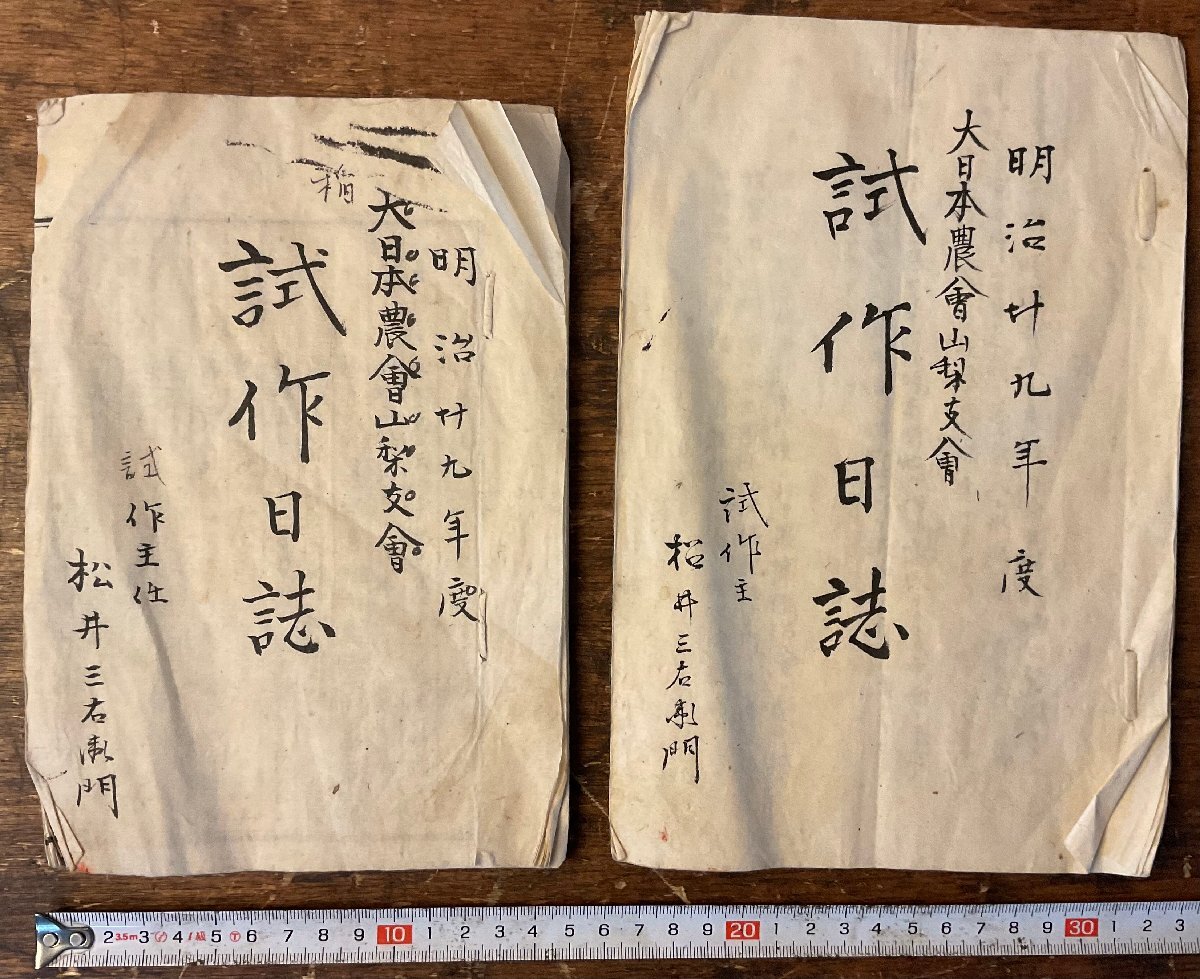 明治廿九年度
大日本農會山梨支會
試作日誌
試作主
松井三右衛門
明治廿九年度
大日本農會山梨支會
試作日誌
試作主任
松井三右衛門
2 3.5m 3 4 1級 5 6 7 8 9 10 1 2 3 4 5 6 7 8 9 20 1 2 3 4 5 6 7 8 9 30 1 2 3